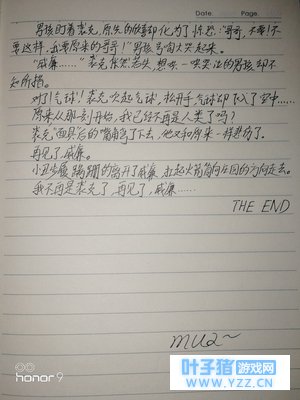 Date: Page:
男孩盯着裘克,原先的欣喜却化为了惊恐:“哥哥,不要!不
要这样,我要原来的哥哥!”男孩号啕大哭起来。
“威廉……”裘克怅然若失,想哄一哄哭泣的男孩却不
知所措。
对了!气球!裘克吹起气球,松开手,气球却飞入了空中……
原来从那刻开始,我已经不再是人类了吗?
裘克“面具”后的嘴角弯了下去,他又和原来一样悲伤了。
再见了,威廉。
小丑步履蹒跚的离开了威廉,扛起火箭筒向庄园的方向走去。
我不再是裘克了,再见了,威廉……
THE END
mua~
honor 9
叶子猪游戏网
WWW.YZZ.CN